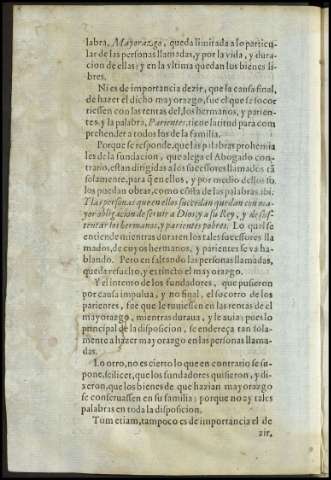 labra, Mayorazgo, queda limitada a lo particu-
lar de las personas llamadas, y por la vida, y dura-
cion de ellas: y en la vltima quedan los bienes li-
bres.
Ni es de importancia dezir, que la causa final,
de hazer el dicho mayorazgo, fue el que se socor
riessen con las rentas del, los hermanos, y parien-
tes, y la palabra, Parientes, tiene latitud para com
prehender a todos los de la familia.
Porque se responde, que las palabras prohemia
les de la fundacion, que alega el Abogado con-
trario, estan dirigidas a los sucessores llamados tã
solamente, para q̃ en ellos, y por medio dellos so
los puedan obrar, como cõsta de las palabras ibi:
Y las personas que en ellos sucedan quedan con ma
yor obligacion de seruir a Dios, y a su Rey, y de sus-
tentar los hermanos, y parientes pobres. Lo qual se
entiende mientras duraren los tales sucessores lla
mados, de cuyos hermanos, y parientes se va ha-
blando. Pero en faltando las personas llamadas,
queda resuelto, y extincto el mayorazgo.
Y el intento de los fundadores, que pusieron
por causa impulsiua, y no final, el socorro de los
parientes, fue que le tuuiessen en las rentas de el
mayorazgo, mientras duraua, y le auia: pues lo
principal de la disposicion, se endereça tan sola-
mente a hazer mayorazgo en las personas llama-
das.
Lo otro, no es cierto lo que en contrario se su-
pone, scilicet, que los fundadores quisieron, y di-
xeron, que los bienes de que hazian mayorazgo
se conseruassen en su familia: porque no ay tales
palabras en toda la disposicion.
Tum etiam, tampoco es de importancia el de
zir,